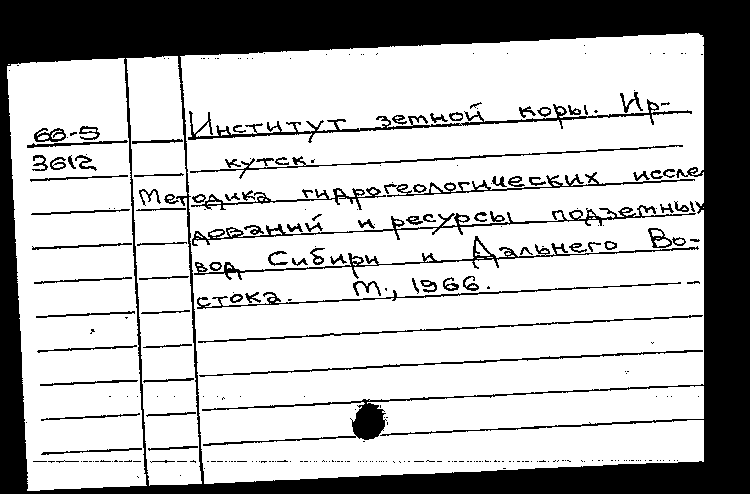 66-5 Институт земной коры. Ир-
3612 кутск.
Методика гидрогеологических иссле
дований и ресурсы подземных
вод Сибири и Дальнего Во-
стока. М., 1966.